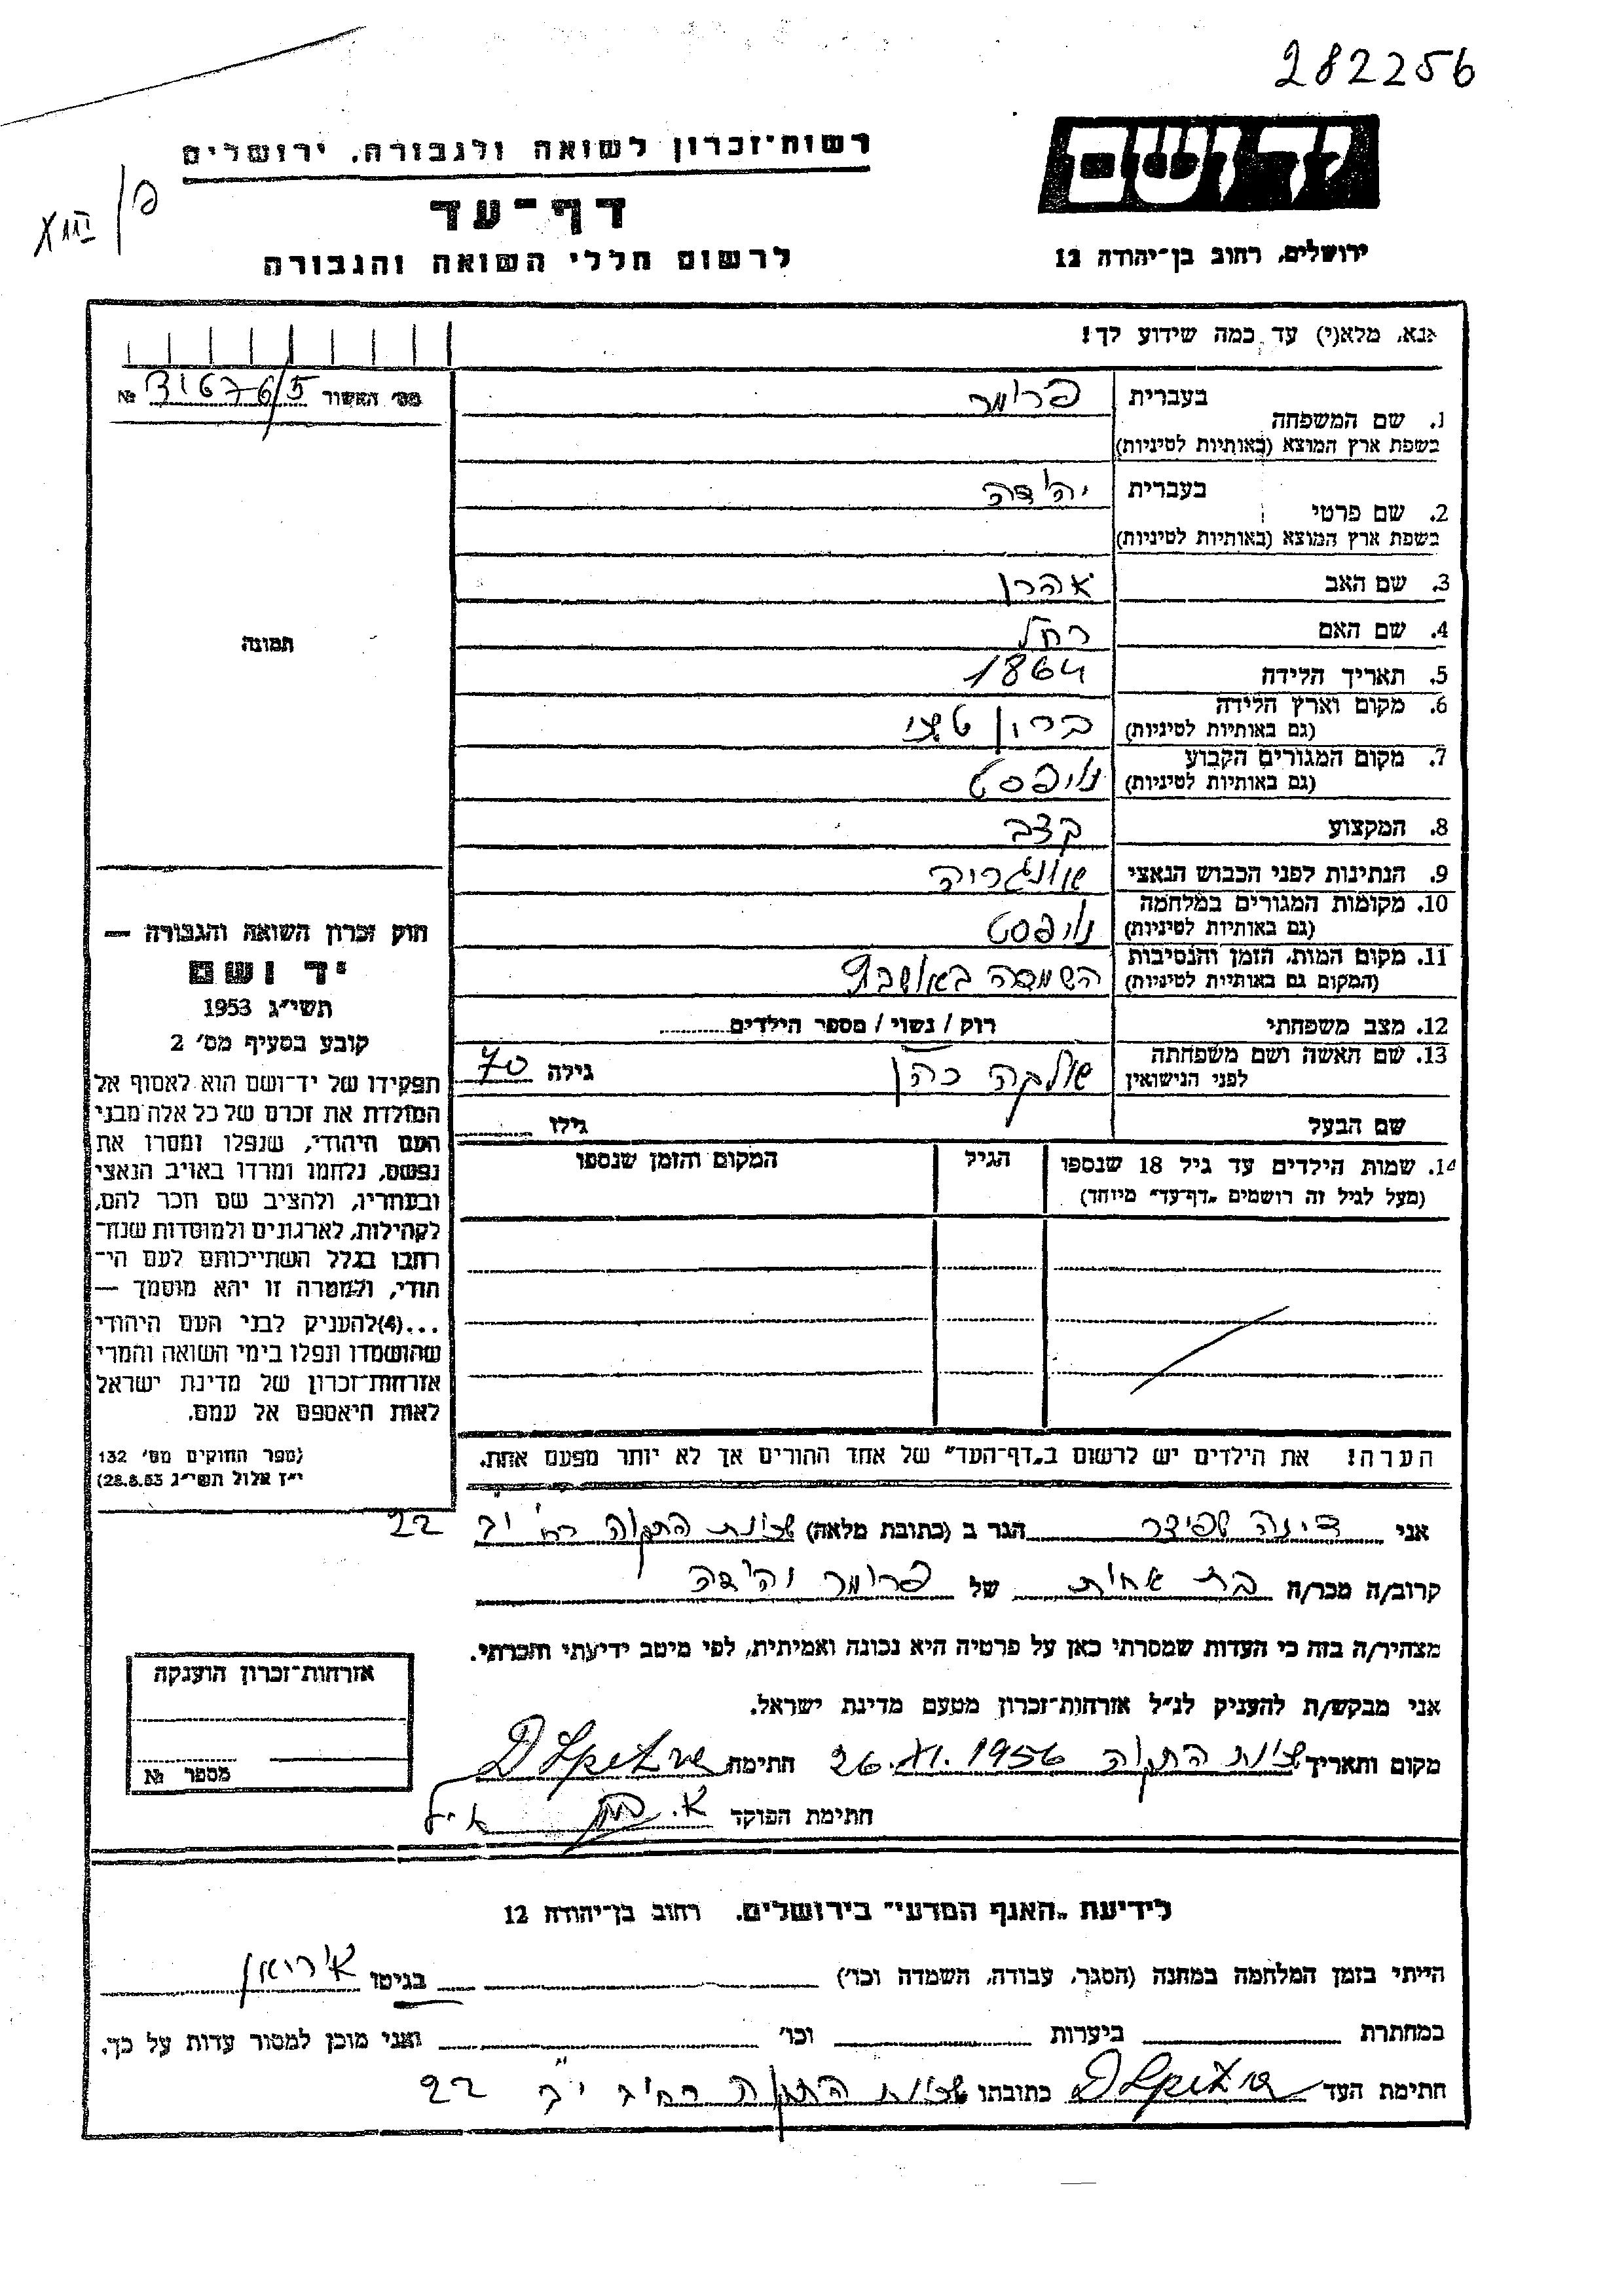 282256
יד ושם
רשות־זכרון לשואה ולגבורה, ירושלים
דף־עד
לרשום חללי השואה והגבורה
ירושלים, רחוב בן־יהודה 12
XIII / פ
אנא, מלא(י) עד כמה שידוע לך!
מס' האשור 31676/5 №
1. שם המשפחה בעברית פרומר
בשפת ארץ המוצא (באותיות לטיניות)
2. שם פרטי בעברית יהודה
בשפת ארץ המוצא (באותיות לטיניות)
3. שם האב אהרן
4. שם האם רחל
תמונה
5. תאריך הלידה 1864
6. מקום וארץ הלידה
(גם באותיות לטיניות)
7. מקום המגורים הקבוע
(גם באותיות לטיניות)
8. המקצוע קצב
9. הנתינות לפני הכבוש הנאצי אונגריה
10. מקומות המגורים במלחמה
(גם באותיות לטיניות)
11. מקום המות, הזמן והנסיבות
(המקום גם באותיות לטיניות) השמדה
12. מצב משפחתי רוק / נשוי / מספר הילדים
13. שם האשה ושם משפחתה
לפני הנישואין כהן גילה 70
שם הבעל גילו
14. שמות הילדים עד גיל 18 שנספו הגיל המקום והזמן שנספו
(מעל לגיל זה רושמים „דף־עד" מיוחד)
חוק זכרון השואה והגבורה —
יד ושם
תשי"ג 1953
קובע בסעיף מס' 2
תפקידו של יד־ושם הוא לאסוף אל
המולדת את זכרם של כל אלה מבני
העם היהודי, שנפלו ומסרו את
נפשם, נלחמו ומרדו באויב הנאצי
ובעוזריו, ולהציב שם וזכר להם,
לקהילות, לארגונים ולמוסדות שנח־
רחבו בגלל השתייכותם לעם הי־
הודי, ולמטרה זו יהא מוסמך —
...(4)להעניק לבני העם היהודי
שהושמדו ונפלו בימי השואה והמרי
אזרחות־זכרון של מדינת ישראל
לאות היאספם אל עמם.
(ספר החוקים מס' 132
י"ז אלול תשי"ג 28.8.53)
הערה! את הילדים יש לרשום ב„דף־העד" של אחד ההורים אך לא יותר מפעם אחת.
אני דינה שפיצר הגר ב (כתובת מלאה) שכונת התקוה רח' יב 22
קרוב/ה מכר/ה בת אחות של פרומר יהודה
מצהיר/ה בזה כי העדות שמסרתי כאן על פרטיה היא נכונה ואמיתית, לפי מיטב ידיעתי והכרתי.
אני מבקש/ת להעניק לנ"ל אזרחות־זכרון מטעם מדינת ישראל.
מקום ותאריך שכונת התקוה 26.XI.1956 חתימה
חתימת הפוקד
אזרחות־זכרון הוענקה
מספר №
לידיעת „האגף המדעי" בירושלים, רחוב בן־יהודה 12
הייתי בזמן המלחמה במחנה (הסגר, עבודה, השמדה וכו') בגיטו
במחתרת ביערות וכו' ואני מוכן למסור עדות על כך.
חתימת העד כתובתו שכונת התקוה רחוב י"ב 22